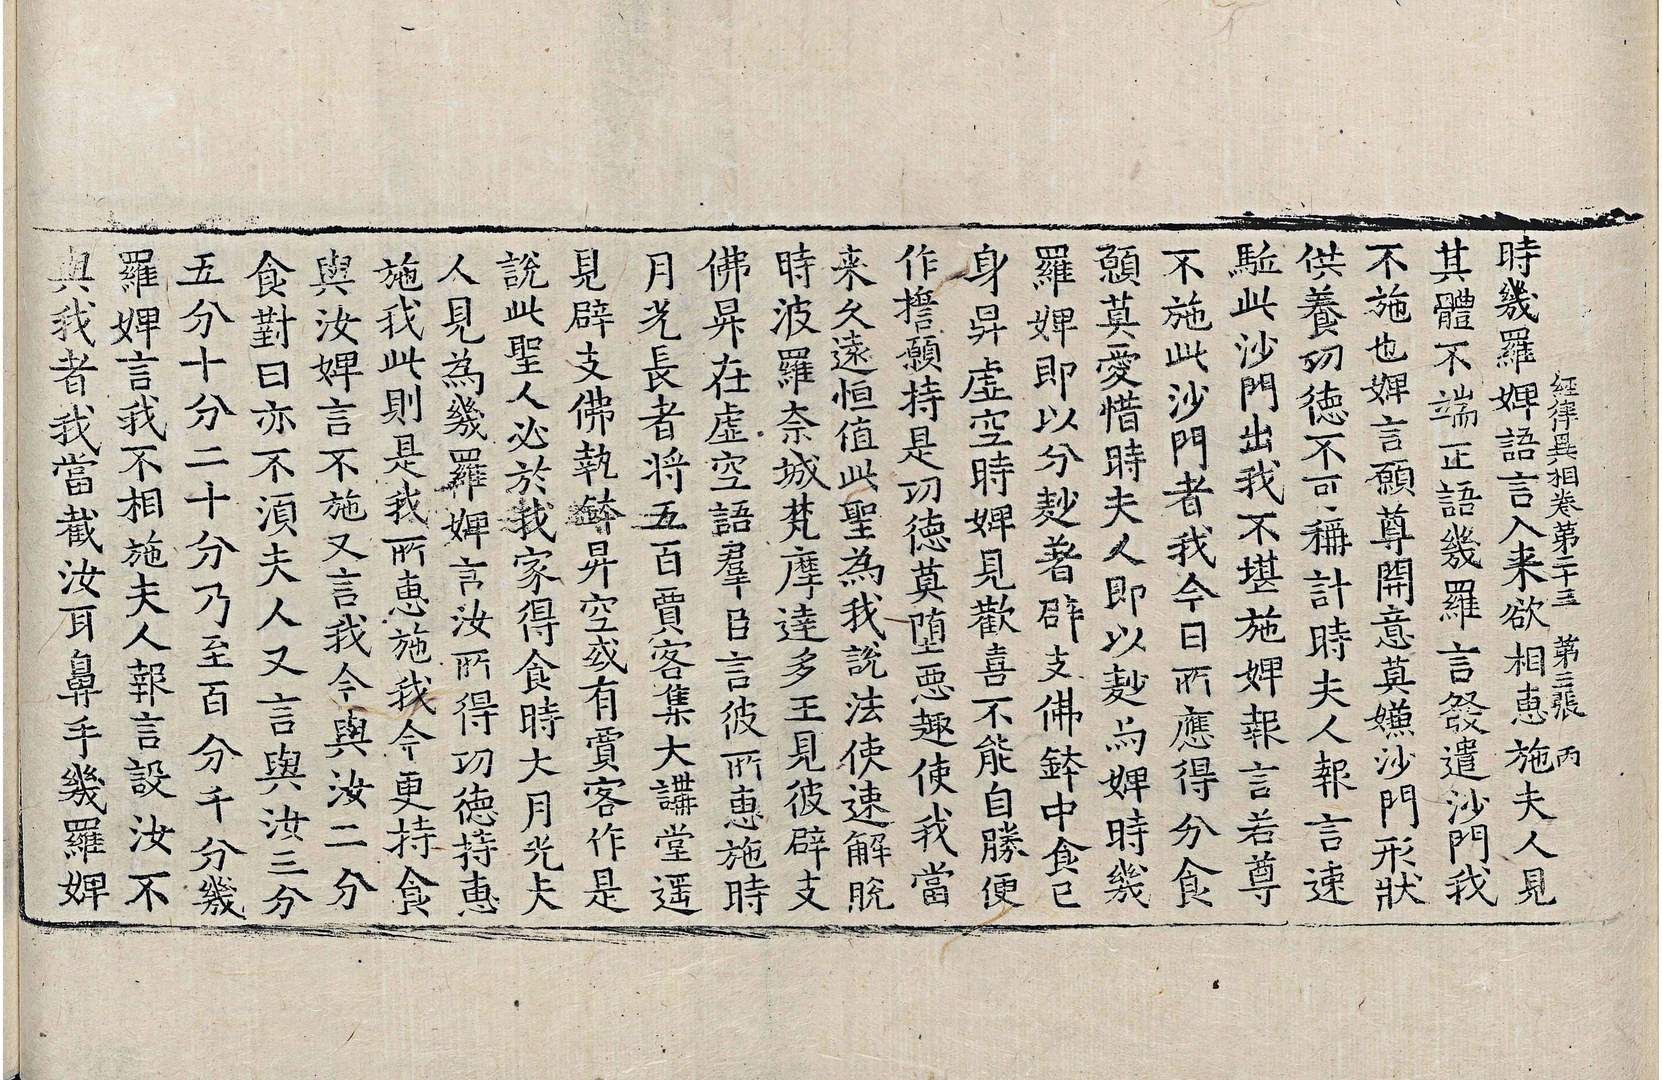 經律異相卷第二十三 第三張 丙
時幾羅婢語言入来欲相惠施夫人見
其體不端正語幾羅言發遣沙門我
不施也婢言願尊開意莫嫌沙門形狀
供養功德不可稱計時夫人報言速
駈此沙門出我不堪施婢報言若尊
不施此沙門者我今日所應得分食
願莫愛惜時夫人即以麨為婢時幾
羅婢即以分麨著辟支佛鉢中食已
身昇虛空時婢見歡喜不能自勝便
作誓願持是功德莫墮惡趣使我當
来久遠恒值此聖為我說法使速解脫
時波羅奈城梵摩達多王見彼辟支
佛昇在虛空語羣臣言彼所惠施時
月光長者將五百賈客集大講堂遥
見辟支佛執鉢昇空或有賈客作是
說此聖人必於我家得食時大月光夫
人見為幾羅婢言汝所得功德持惠
施我此則是我所惠施我今更持食
與汝婢言不施又言我今與汝二分
食對曰亦不湏夫人又言與汝三分
五分十分二十分乃至百分千分幾
羅婢言我不相施夫人報言設汝不
與我者我當截汝耳鼻手幾羅婢